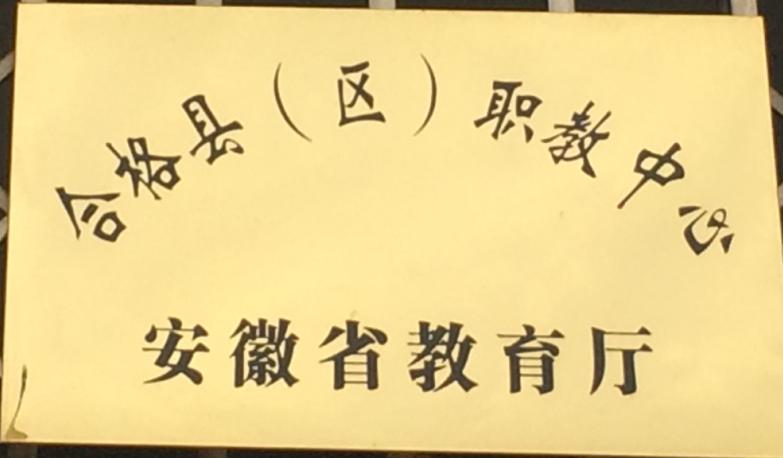 合格县（区）职教中心
安徽省教育厅